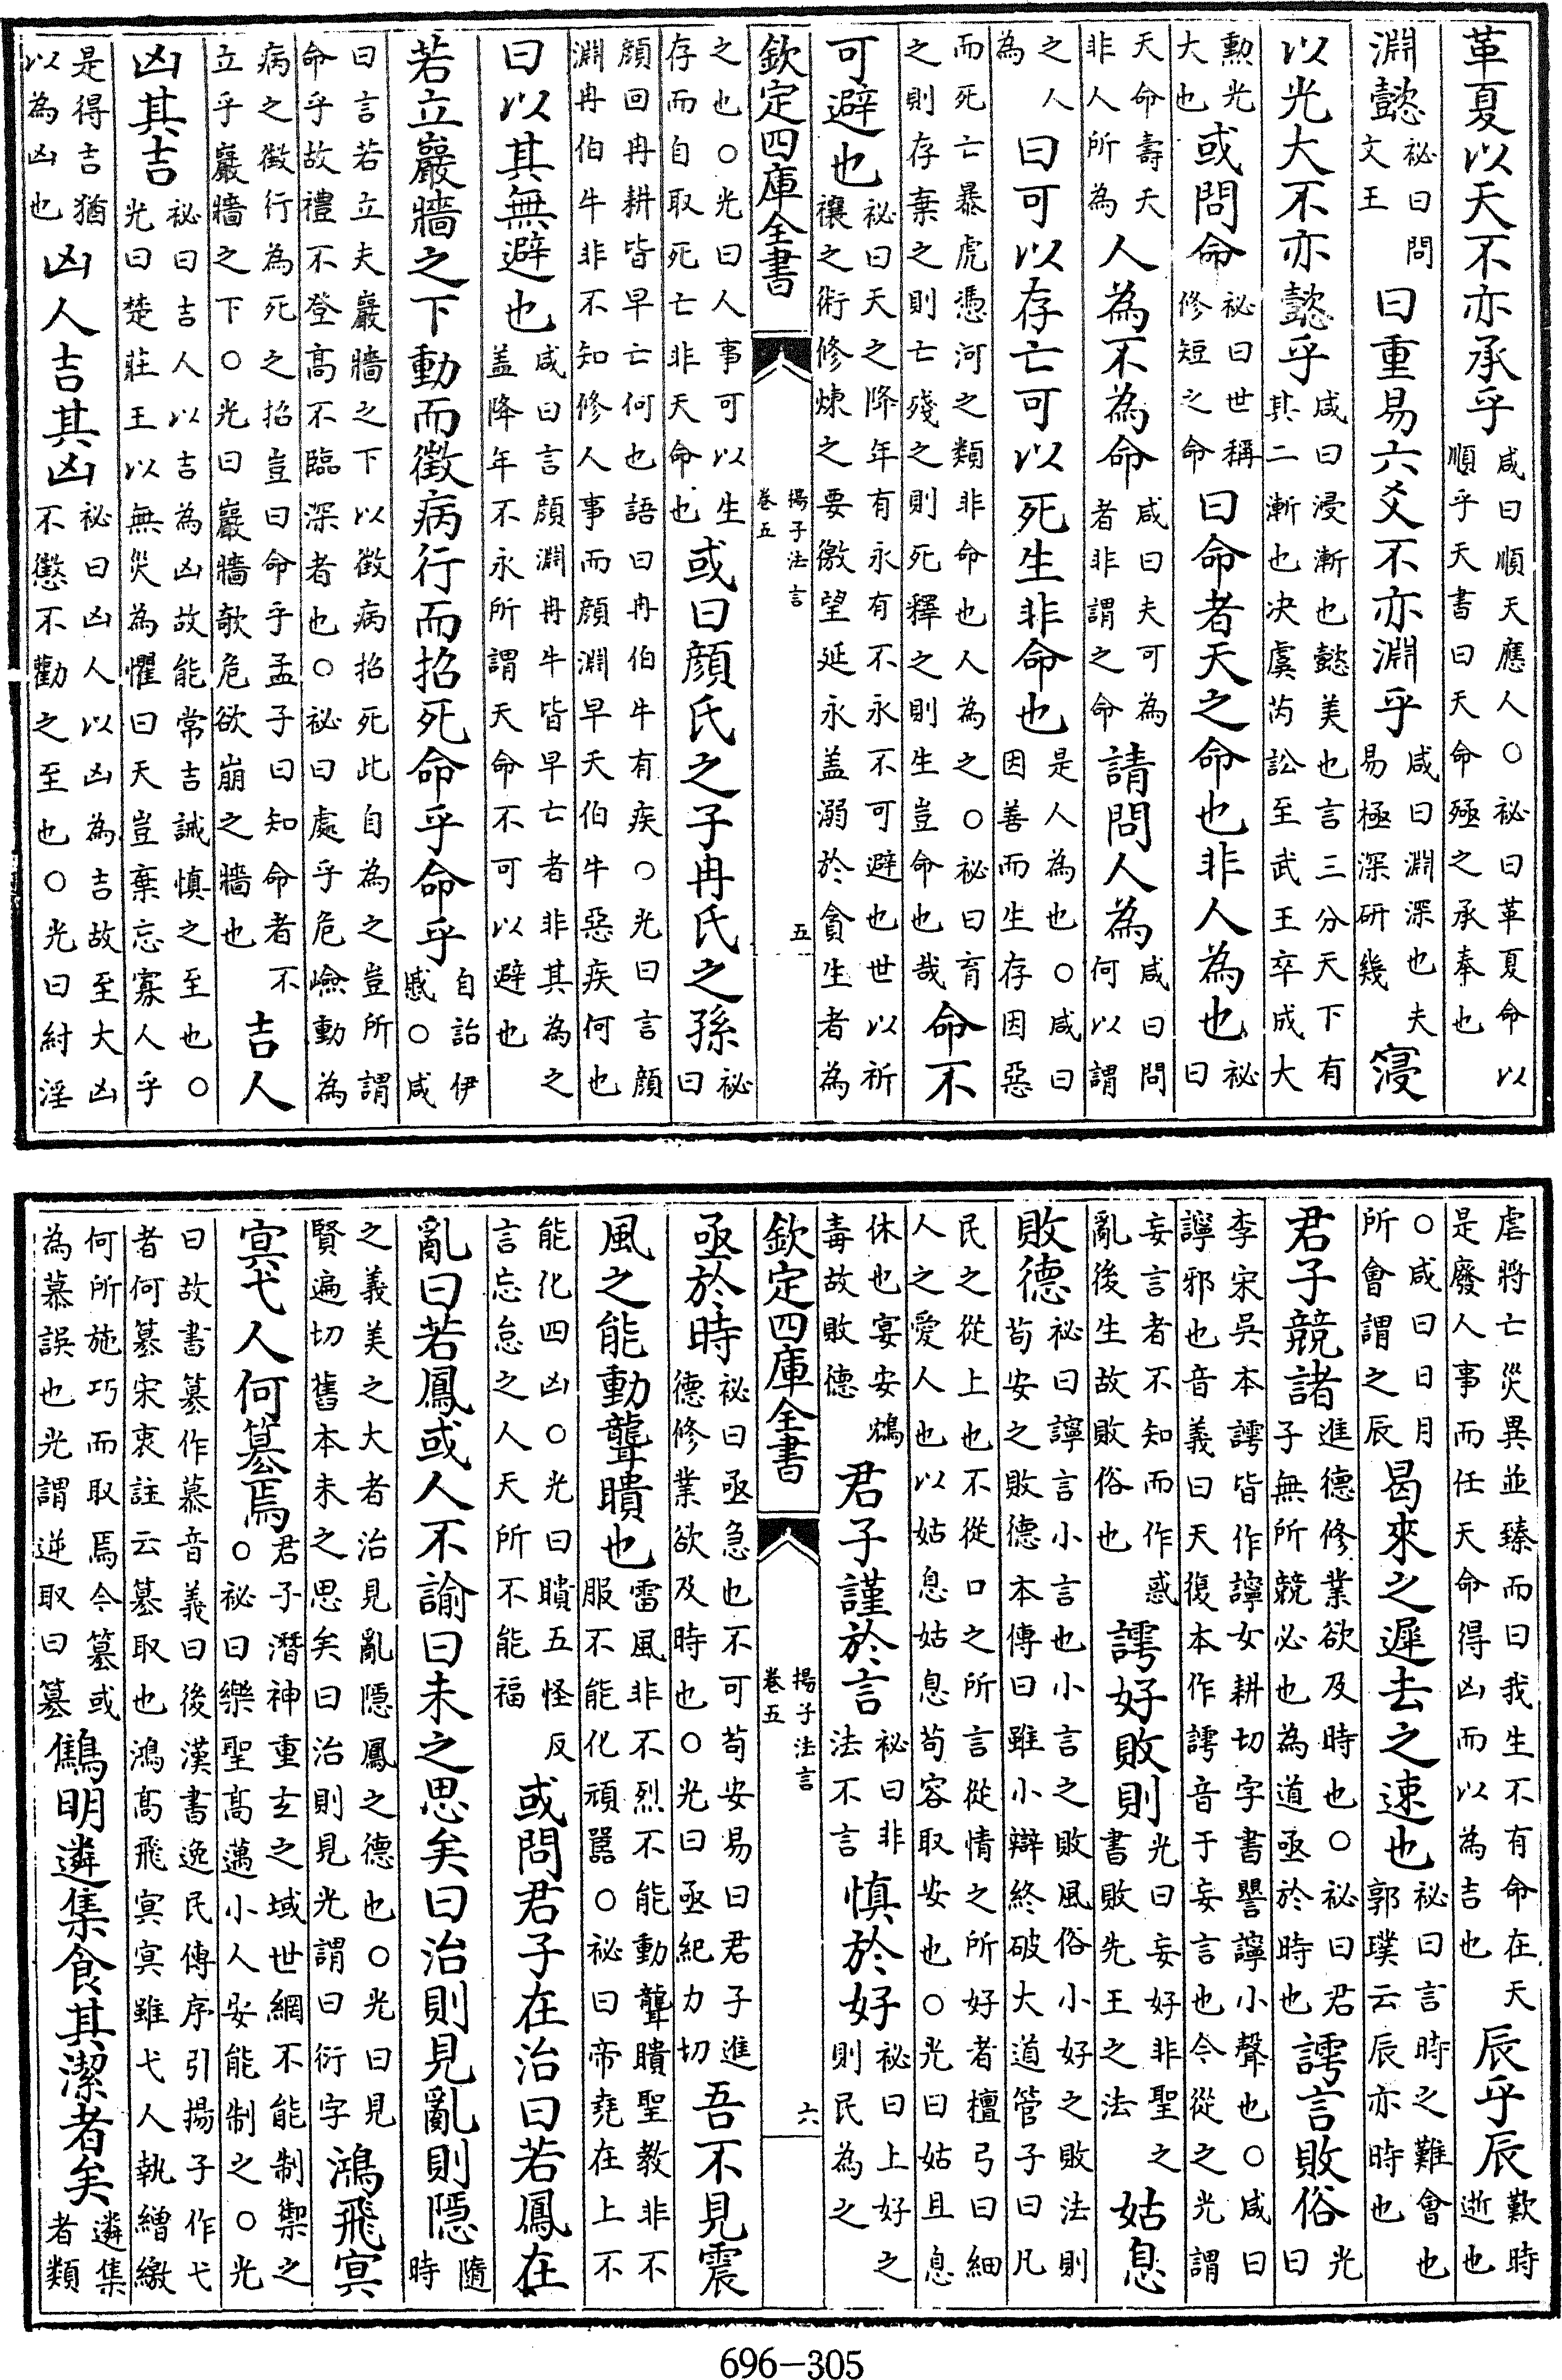 革夏以天不亦承乎咸曰順天應人○祕曰革夏命以順乎天書曰天命殛之承奉也
淵懿祕曰問文王曰重易六爻不亦淵乎咸曰淵深也夫易極深研幾寖
以光大不亦懿乎咸曰浸漸也懿美也言三分天下有其二漸也决虞芮訟至武王卒成大
勲光大也或問命祕曰世稱修短之命曰命者天之命也非人為也祕曰
天命壽夭非人所為人為不為命咸曰夫可為者非謂之命請問人為咸曰問何以謂
之人為曰可以存亡可以死生非命也是人為也○咸曰因善而生存因惡
而死亡暴虎憑河之類非命也人為之○祕曰育之則存棄之則亡殘之則死釋之則生豈命也哉命不
可避也祕曰天之降年有永有不永不可避也世以祈禳之術修煉之要徼望延永盖溺於貪生者為
欽定四庫全書 揚子法言卷五 五
之也○光曰人事可以生存而自取死亡非天命也或曰顔氏之子冉氏之孫祕曰
顔回冉耕皆早亡何也語曰冉伯牛有疾○光曰言顔淵冉伯牛非不知修人事而顔淵早夭伯牛惡疾何也
曰以其無避也咸曰言顔淵冉牛皆早亡者非其為之盖降年不永所謂天命不可以避也
若立巖牆之下動而徵病行而招死命乎命乎自詒伊慼○咸
曰言若立夫巖牆之下以徵病招死此自為之豈所謂命乎故禮不登高不臨深者也○祕曰處乎危嶮動為
病之徵行為死之招豈曰命乎孟子曰知命者不立乎巖牆之下○光曰巖牆欹危欲崩之牆也吉人
凶其吉祕曰吉人以吉為凶故能常吉誡慎之至也○光曰楚莊王以無災為懼曰天豈棄忘寡人乎
是得吉猶以為凶也凶人吉其凶祕曰凶人以凶為吉故至大凶不懲不勸之至也○光曰紂淫
虐將亡災異並臻而曰我生不有命在天是廢人事而任天命得凶而以為吉也辰乎辰歎時逝也
○咸曰日月所會謂之辰曷來之遲去之速也祕曰言時之難會也郭璞云辰亦時也
君子競諸進德修業欲及時也○祕曰君子無所競必也為道亟於時也謣言敗俗光曰
李宋吳本謣皆作譁女耕切字書譻譁小聲也○咸曰譁邪也音義曰天復本作謣音于妄言也今從之光謂
妄言者不知而作惑亂後生故敗俗也謣好敗則光曰妄好非聖之書敗先王之法姑息
敗德祕曰譁言小言也小言之敗風俗小好之敗法則苟安之敗德本傳曰雖小辯終破大道管子曰凡
民之從上也不從口之所言從情之所好者檀弓曰細人之愛人也以姑息姑息苟容取安也○光曰姑且息
休也宴安鴆毒故敗德君子謹於言祕曰非法不言慎於好祕曰上好之則民為之
欽定四庫全書 揚子法言卷五 六
亟於時祕曰亟急也不可苟安易曰君子進德修業欲及時也○光曰亟紀力切吾不見震
風之能動聾聵也雷風非不烈不能動聾聵聖教非不服不能化頑嚚○祕曰帝堯在上不
能化四凶○光曰聵五怪反言忘怠之人天所不能福或問君子在治曰若鳳在
亂曰若鳳或人不諭曰未之思矣曰治則見亂則隱隨時
之義美之大者治見亂隱鳳之德也○光曰見賢遍切舊本未之思矣曰治則見光謂曰衍字鴻飛冥
冥弋人何篡焉君子潛神重玄之域世網不能制禦之○祕曰樂聖高邁小人安能制之○光
曰故書篡作慕音義曰後漢書逸民傳序引揚子作弋者何篡宋衷註云篡取也鴻高飛冥冥雖弋人執繒繳
何所施巧而取焉今篡或為慕誤也光謂逆取曰篡鷦明遴集食其潔者矣遴集者類
696-305